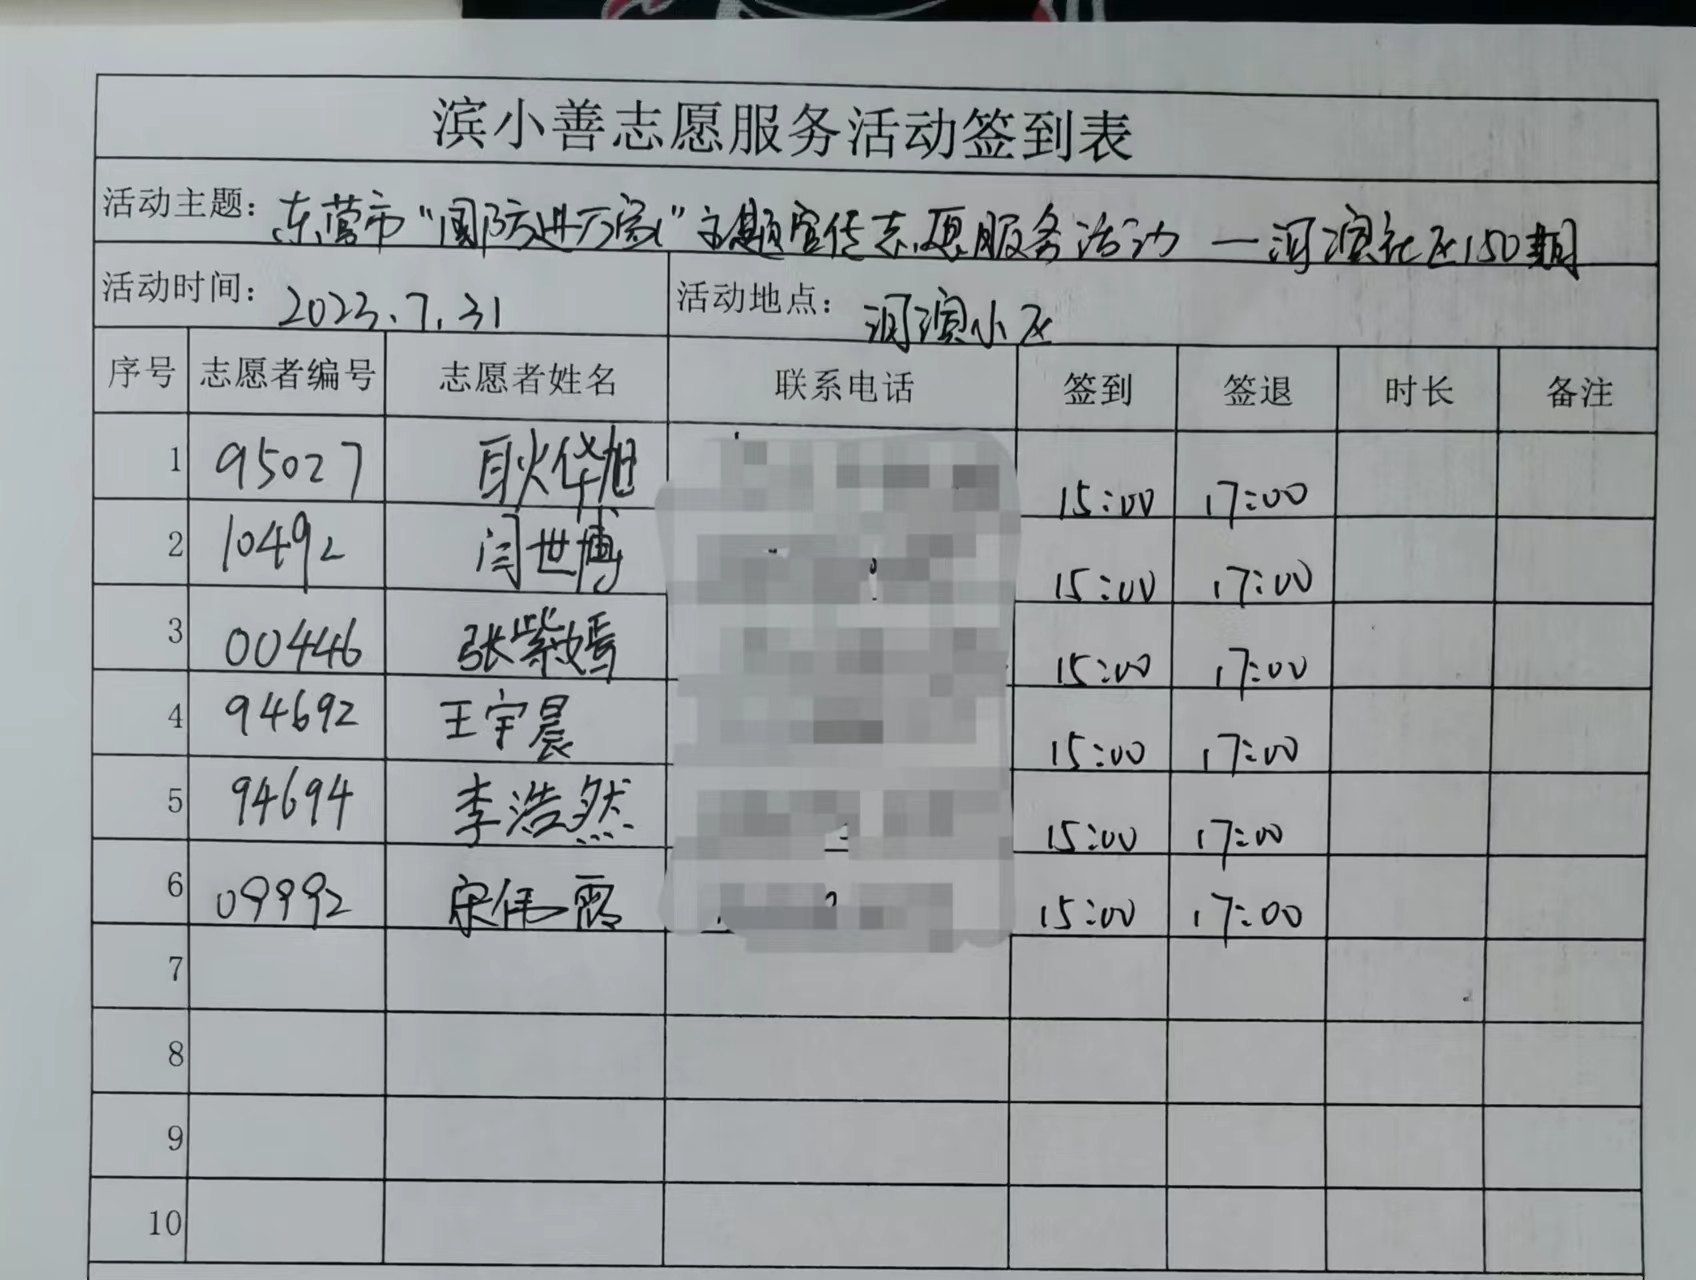 滨小善志愿服务活动签到表
活动主题: 东营市“国防进万家”主题宣传志愿服务活动 — 河滨社区150期
活动时间: 2023.7.31 活动地点: 河滨小区
序号 志愿者编号 志愿者姓名 联系电话 签到 签退 时长 备注
1 95027 耿华旭 15:00 17:00
2 10492 闫世博 15:00 17:00
3 00446 张紫嫣 15:00 17:00
4 94692 王宇晨 15:00 17:00
5 94694 李浩然 15:00 17:00
6 09992 宋伟霞 15:00 17:00
7
8
9
10